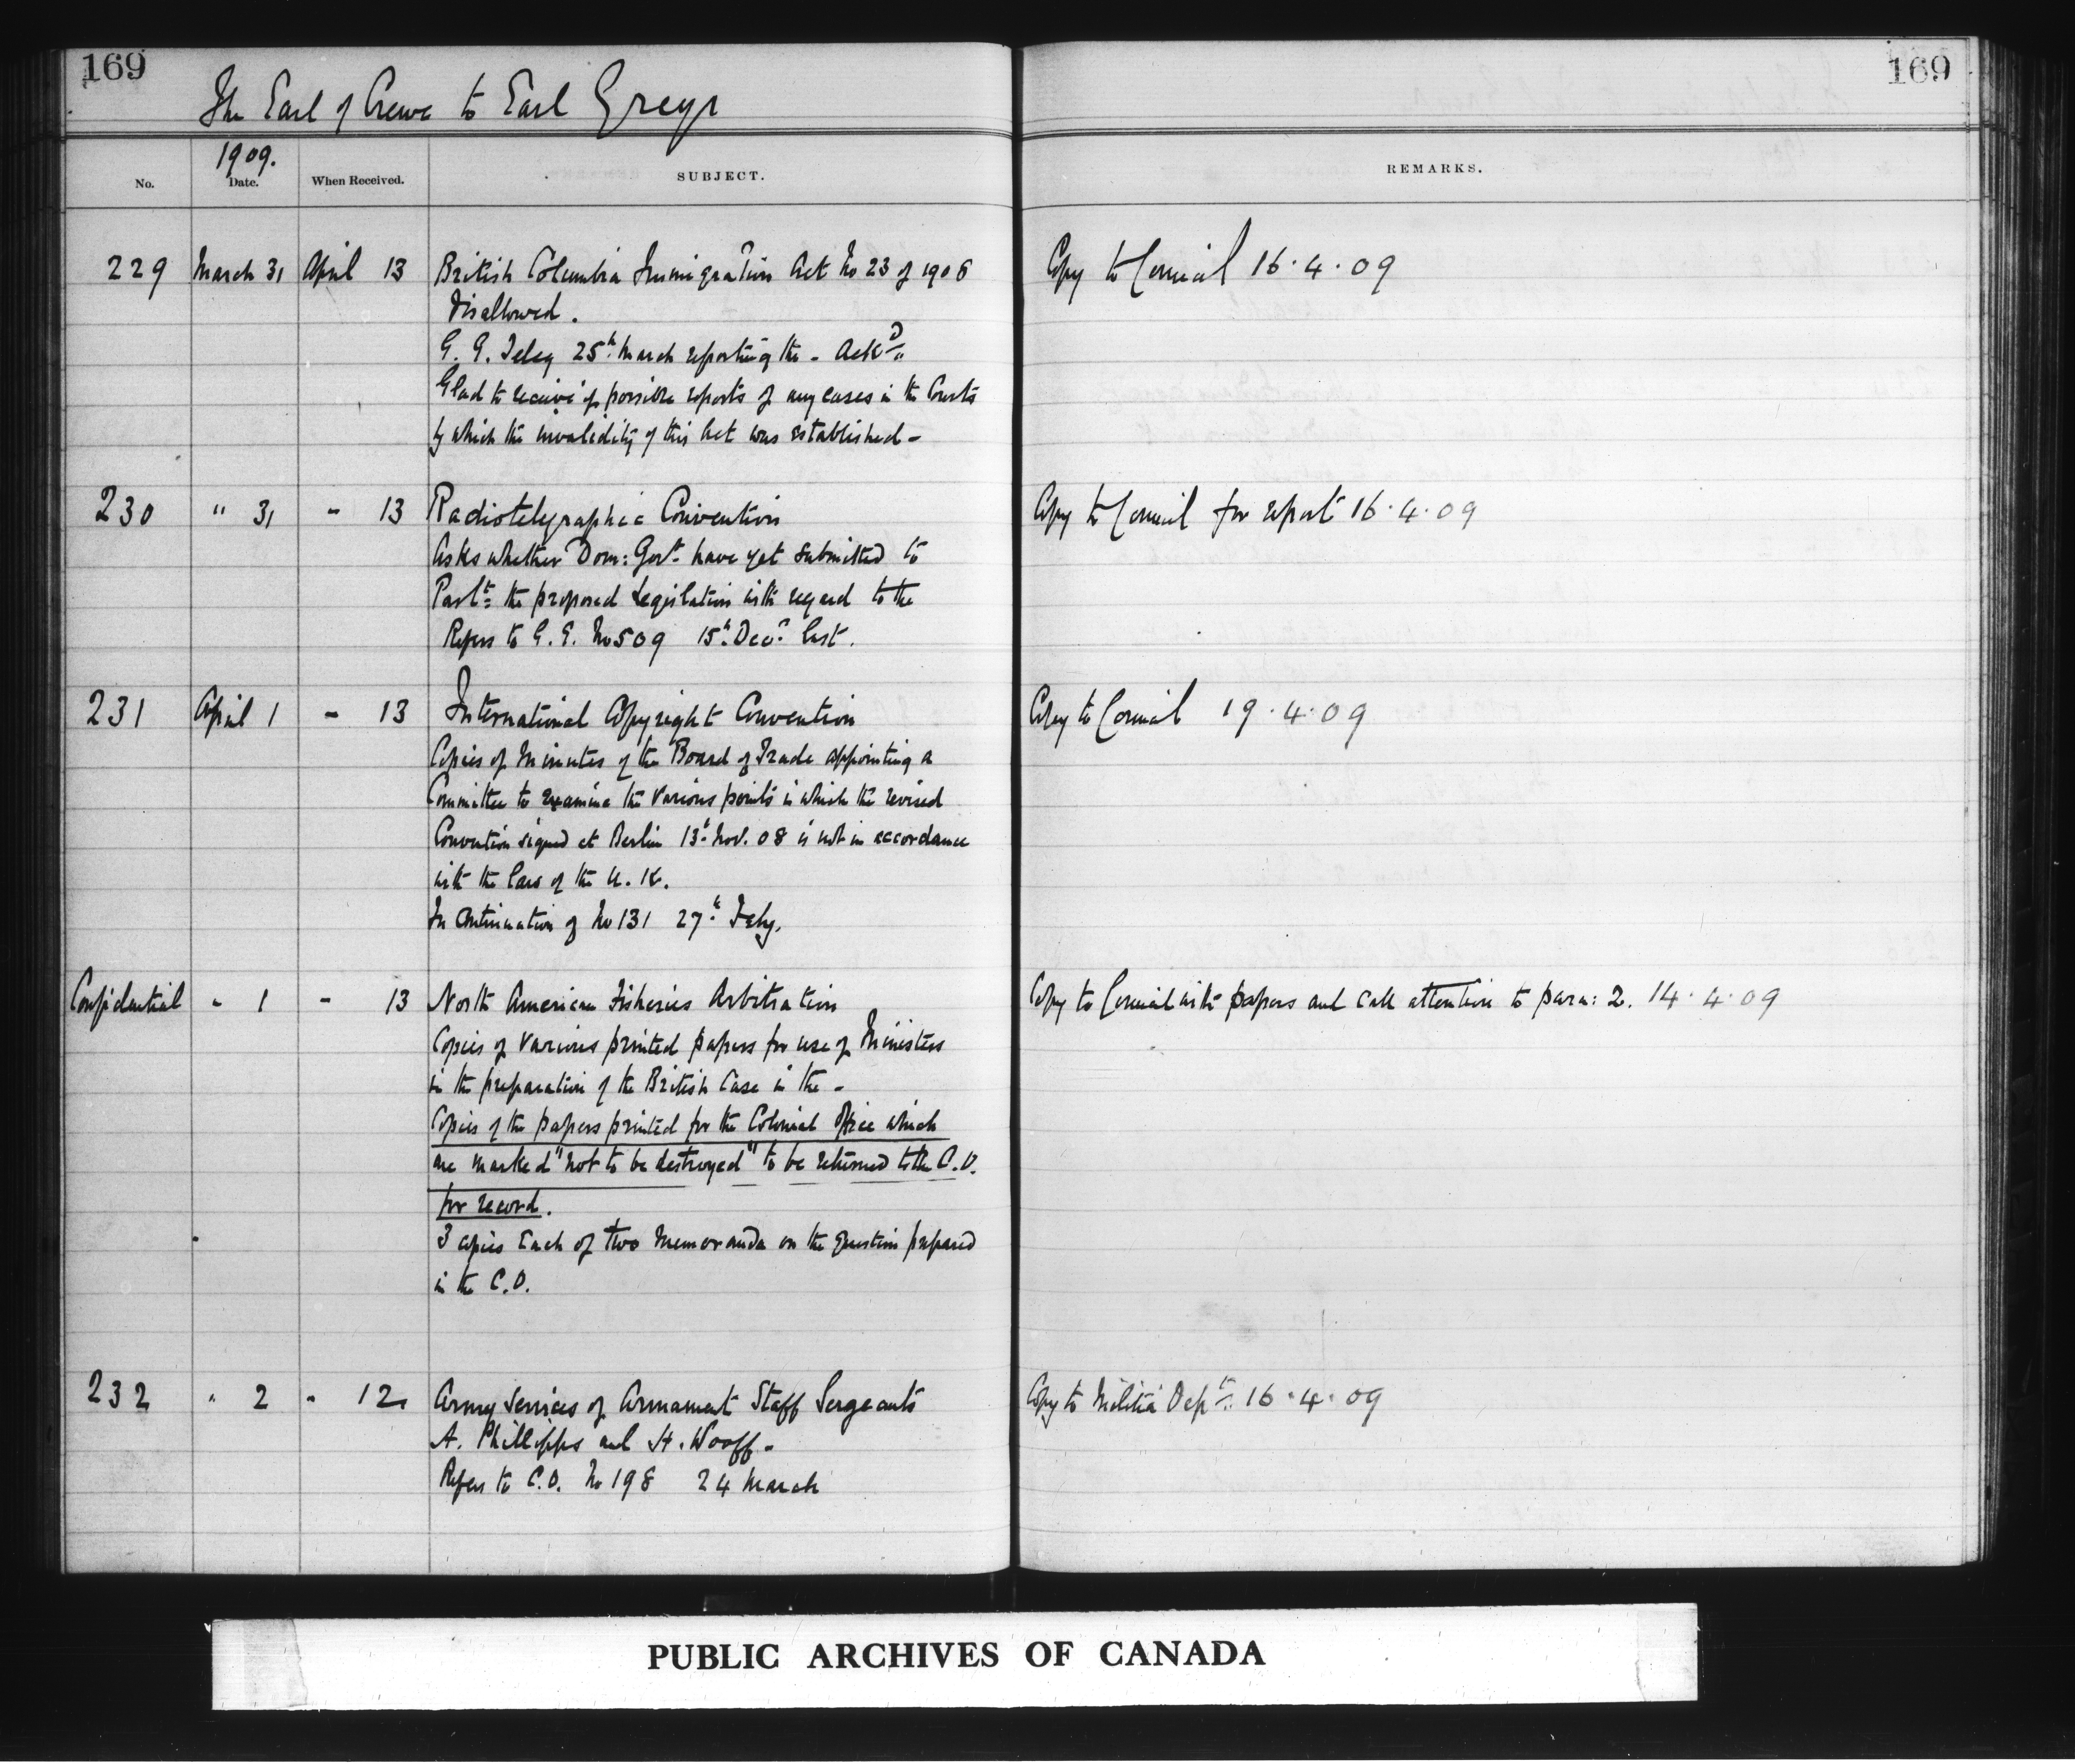 169
169
The Earl of Crewe to Earl Grey
1909.
No. Date. When Received. SUBJECT. REMARKS.
229 March 31 April 13 British Columbia Immigration Act No 23 of 1908 Copy to Council 16.4.09
Disallowed.
G.G. Teleg 25th March reporting the - Ackd
Glad to receive if possible reports of any cases in the Courts
by which the invalidity of this Act was established -
230 " 31 - 13 Radiotelegraphic Convention Copy to Council for report 16.4.09
Asks whether Dom: Govt have yet submitted to
Parlt: the proposed legislation with regard to the
Refers to G.G. No 509 15th Decr last.
231 April 1 - 13 International Copyright Convention Copy to Council 19.4.09
Copies of Minutes of the Board of Trade appointing a
Committee to examine the various points in which the revised
Convention signed at Berlin 13th Nov. 08 is not in accordance
with the law of the U.K.
In continuation of No 131 27th Feby.
Confidential " 1 - 13 North American Fisheries Arbitration Copy to Council with papers and call attention to para: 2. 14.4.09
Copies of various printed papers for use of Ministers
in the preparation of the British Case in the -
Copies of the papers printed for the Colonial Office which
are marked "not to be destroyed" to be returned to the C.O.
for record.
3 copies each of two Memoranda on the question prepared
in the C.O.
232 " 2 - 12 Army services of Armament Staff Sergeants Copy to Militia Dept: 16.4.09
A. Phillipps and H. Wooff -
Refers to C.O. No 198 24 March
PUBLIC ARCHIVES OF CANADA